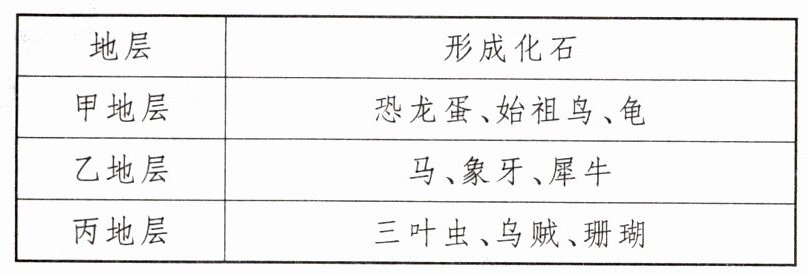 地层 形成化石
甲地层 恐龙蛋、始祖鸟、龟
乙地层 马、象牙、犀牛
丙地层 三叶虫、乌贼、珊瑚